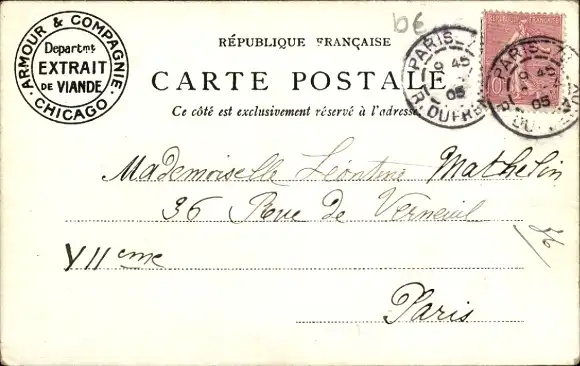 ARMOUR & COMPAGNIE
Departmt
EXTRAIT
DE VIANDE
CHICAGO
b6
RÉPUBLIQUE FRANÇAISE
CARTE POSTALE
Ce côté est exclusivement réservé à l'adresse
REPUBLIQUE FRANÇAISE
10
PARIS
9 45
05
R. DUFREN
PARIS
9 45
05
R. DUFREN
Mademoiselle Léontine Mathelin
36 Rue de Verneuil
VIIeme
Paris